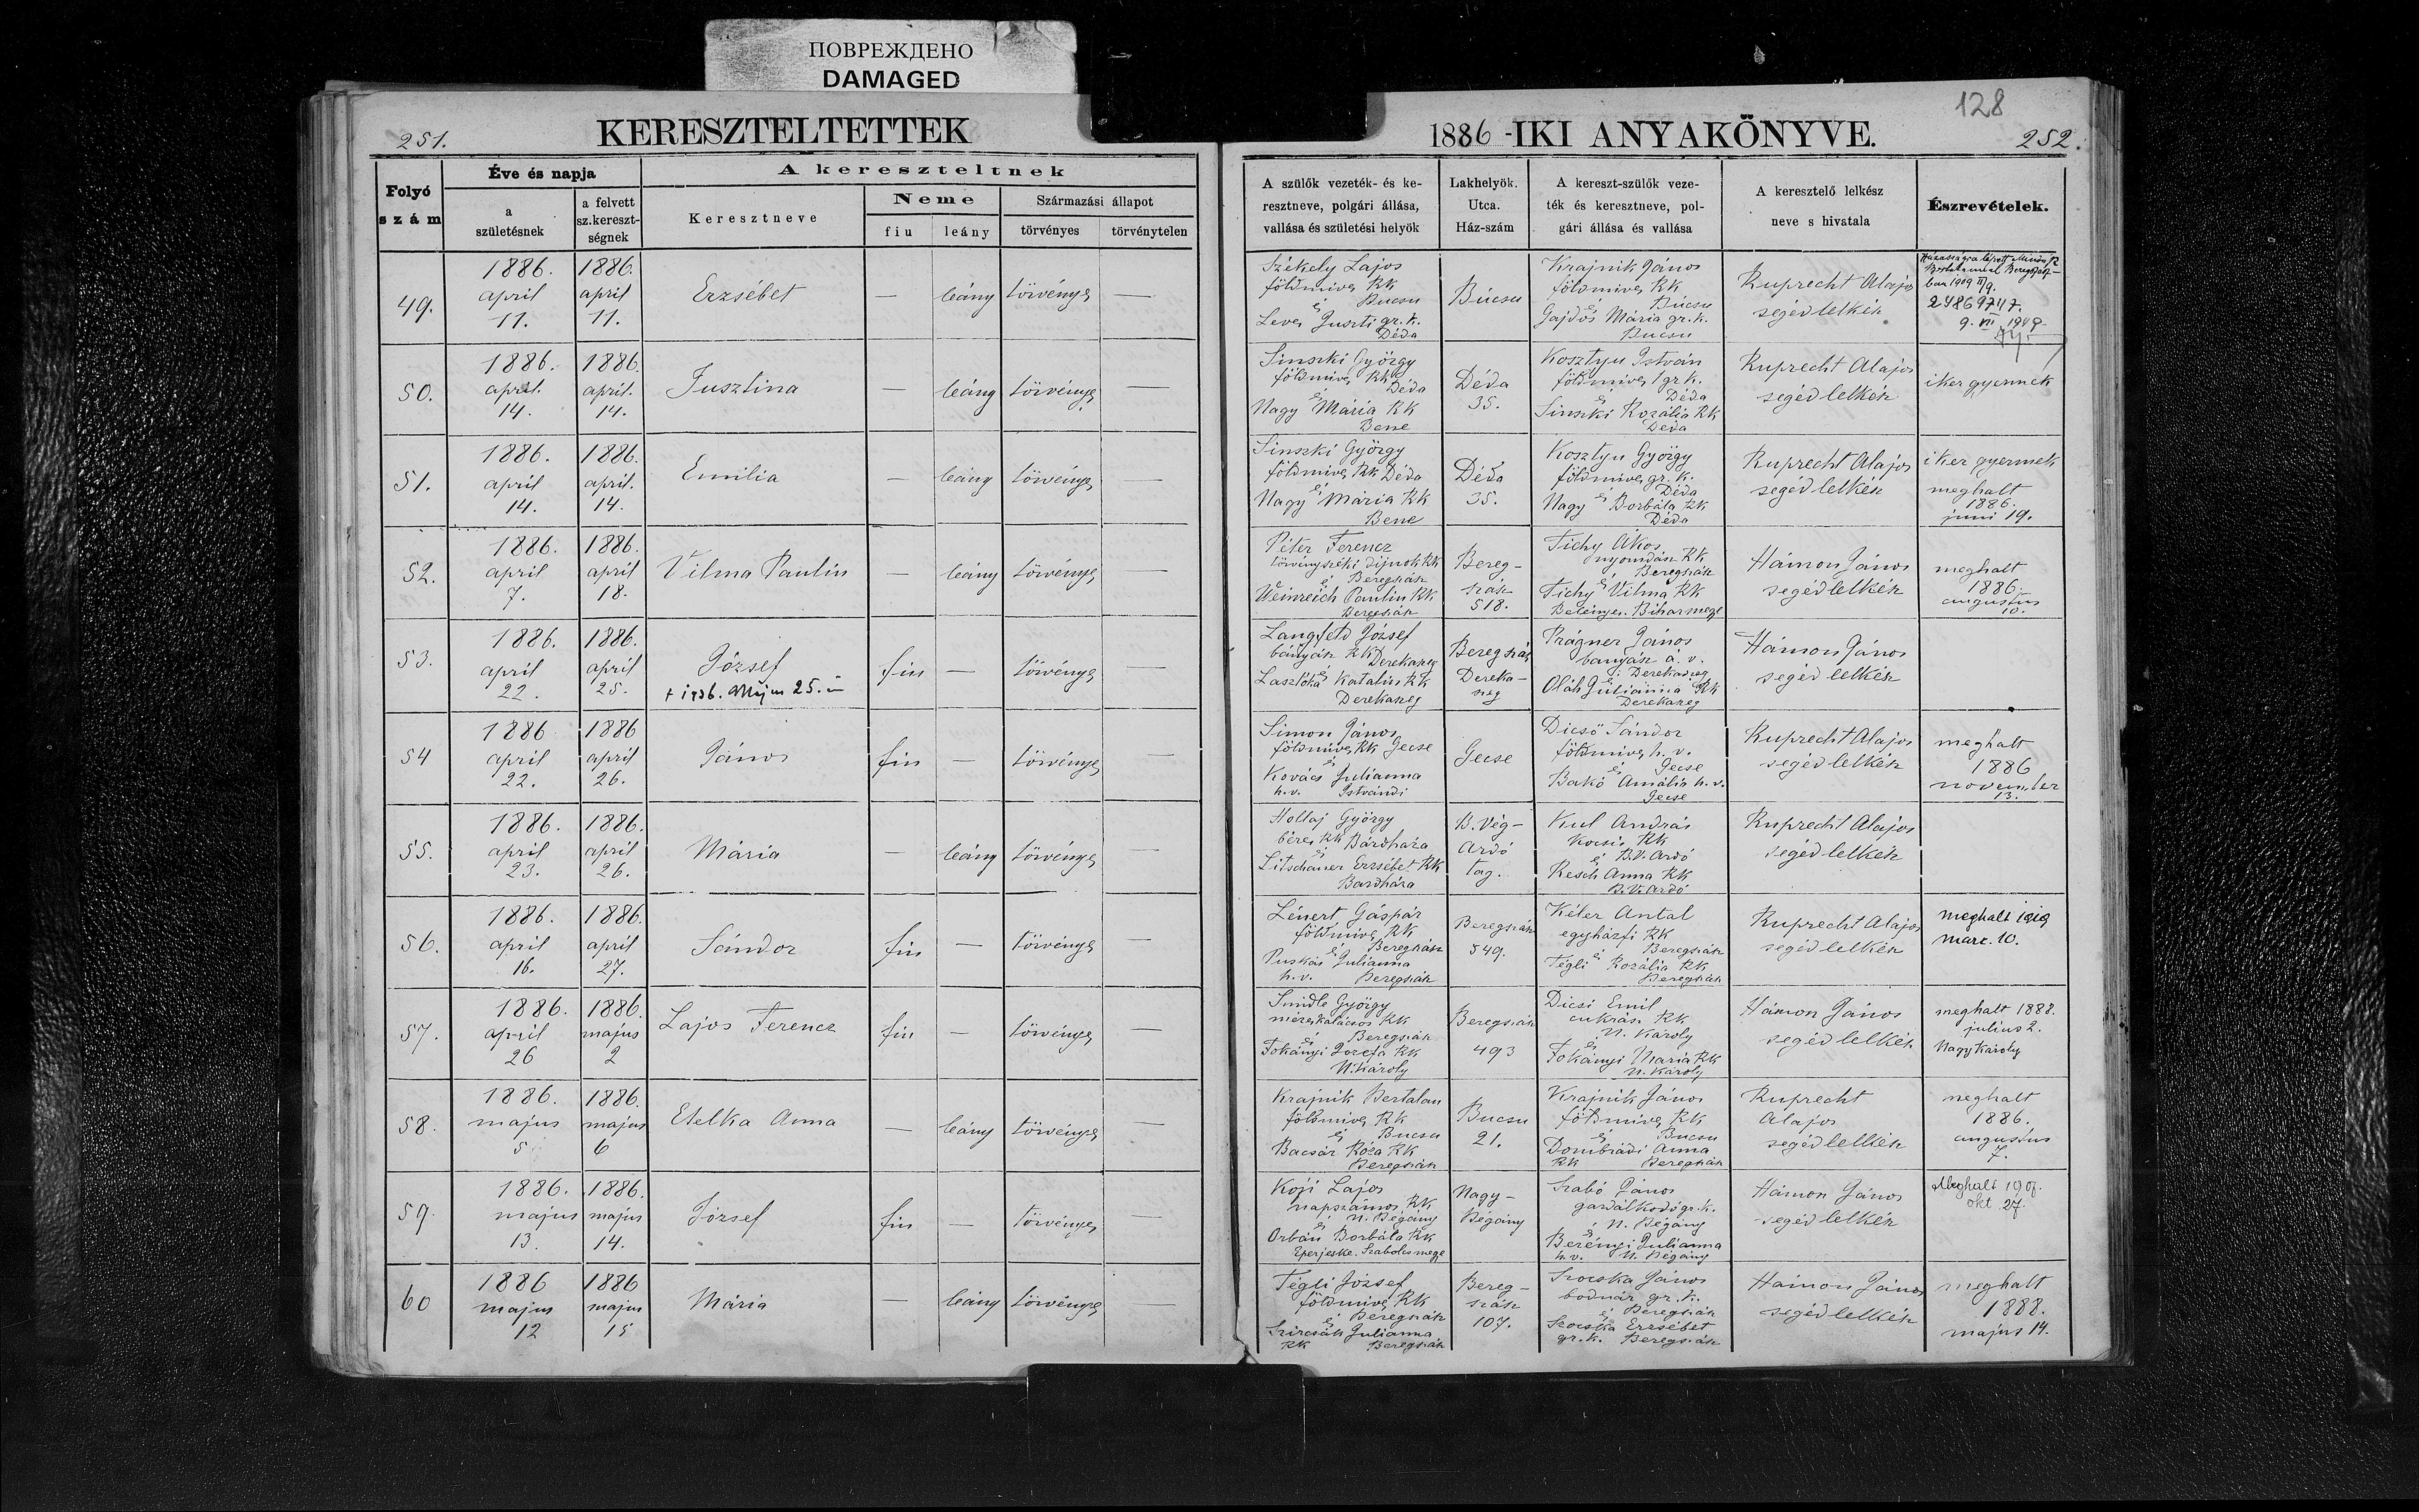 ПОВРЕЖДЕНО
DAMAGED
251.
KERESZTELTETTEK
Folyó szám
Éve és napja
a születésnek
a felvett sz.kereszt-ségnek
A kereszteltnek
Keresztneve
Neme
fiu
leány
Származási állapot
törvényes
törvénytelen
49. 1886. april 11. 1886. april 11. Erzsébet — leány törvényes —
50. 1886. april. 14. 1886. april. 14. Jusztina — leány törvényes —
51. 1886. april 14. 1886. april. 14. Emilia — leány törvényes —
52. 1886. april 7. 1886. april 18. Vilma Paulin — leány törvényes —
53. 1886. april 22. 1886. april 25. József fiu — törvényes —
+ 1936. Május 25.
54 1886 april 22. 1886 april 26. János fiu — törvényes —
55. 1886. april 23. 1886. april 26. Mária — leány törvényes —
56. 1886. april 16. 1886. april 27. Sándor fiu — törvényes —
57. 1886. april 26 1886. majus 2 Lajos Ferencz fiu — törvényes —
58. 1886. majus 5 1886. majus 6 Etelka Anna — leány törvényes —
59. 1886. majus 13. 1886. majus 14. József fiu — törvényes —
60 1886 majus 12 1886 majus 15 Mária — leány törvényes —
128
1886-IKI ANYAKÖNYVE.
252.
A szülők vezeték- és ke-
resztneve, polgári állása,
vallása és születési helyök
Lakhelyök.
Utca.
Ház-szám
A kereszt-szülők veze-
ték és keresztneve, pol-
gári állása és vallása
A keresztelő lelkész
neve s hivatala
Észrevételek.
Székely Lajos
földmives RK
Bucsu
és
Leves Juszti gr. k.
Déda
Búcsu
Krajnik János
földmives RK
és Búcsu
Gajdos Mária gr. k.
Bucsu
Ruprecht Alajos
segédlelkész
1909
9. VII 1949
Sinszki György
földmives RK
és Déda
Nagy Mária RK
Bene
Déda
35.
Kosztyu István
földmives gr k.
és Déda
Sinszki Rozália RK
Déda
Ruprecht Alajos
segédlelkész
iker gyermek
Sinszki György
földmives RK Déda
és
Nagy Mária RK
Bene
Déda
35.
Kosztyu György
földmives gr. k.
és Déda
Nagy Borbála RK
Déda
Ruprecht Alajos
segédlelkész
iker gyermek
meghalt
1886.
juni 19.
Péter Ferencz
törvényszéki dijnok RK
és Beregszász
Weinreich Paulin RK
Beregszász
Bereg-
szász
518.
Tichy Ákos
nyomdász RK
és Beregszász
Tichy Vilma RK
Belényes. Biharmegye
Hámon János
segédlelkész
meghalt
1886.
augustus
10.
Langfeld József
bányász RK
Derekaszeg
és
Katalin RK
Derekaszeg
Beregszász
Dereka-
szeg
Prágner János
banyász á. v.
és Derekaszeg
Oláh Julianna RK
Derekaszeg
Hámon János
segédlelkész
Simon János
földmives RK Gecse
és
Kovács Julianna
h. v. Istvándi
Gecse
Dicső Sándor
földmives h. v.
és Gecse
Bakó Amália h. v.
Gecse
Ruprecht Alajos
segédlelkész
meghalt
1886
november
13.
Hollaj György
béres RK Bárdháza
és
Litschauer Erzsébet RK
Bardháza
B. Vég-
Ardó
tag.
Kul András
Kocsis RK
és B.V. Ardó
Resch Anna RK
B.V. Ardó
Ruprecht Alajos
segédlelkész
Lénert Gáspár
földmives RK
és Beregszász
Puskás Julianna
h. v. Beregszász
Beregszász
549.
Kéler Antal
egyházfi RK
és Beregszász
Tégli Rozália RK
Beregszász
Ruprecht Alajos
segédlelkész
meghalt 1919
marc. 10.
Smidle György
mézeskalácsos RK
és Beregszász
Tokányi Jozefa RK
N. Károly
Beregszász
493
Dicsi Emil
cukrász RK
és N. Károly
Tokányi Maria RK
N. Károly
Hámon János
segédlelkész
meghalt 1888.
julius 2.
Nagy Károly
Krajnik Bertalan
földmives RK
és Bucsu
Bacsár Róza RK
Beregszász
Bucsu
21.
Krajnik János
földmives RK
és Bucsu
Dombrádi Anna
RK Beregszász
Ruprecht
Alajos
segédlelkész
meghalt
1886.
augustus
7.
Koji Lajos
napszámos RK
és N. Bégány
Orbán Borbála RK
Eperjeske. Szabolcsmegye
Nagy-
Bégány
Szabó János
gazdálkodó gr. k.
és N. Bégány
Berényi Julianna
h. v. N. Bégány
Hámon János
segédlelkész
Meghalt
okt 27.
Tégli József
földmives RK
és Beregszász
Szircsák Julianna
RK Beregszász
Bereg-
szász
107.
Szocska János
bodnár gr. k.
és Beregszász
Szocska Erzsébet
gr. k. Beregszász
Hámon János
segédlelkész
meghalt
1888.
majus 14.